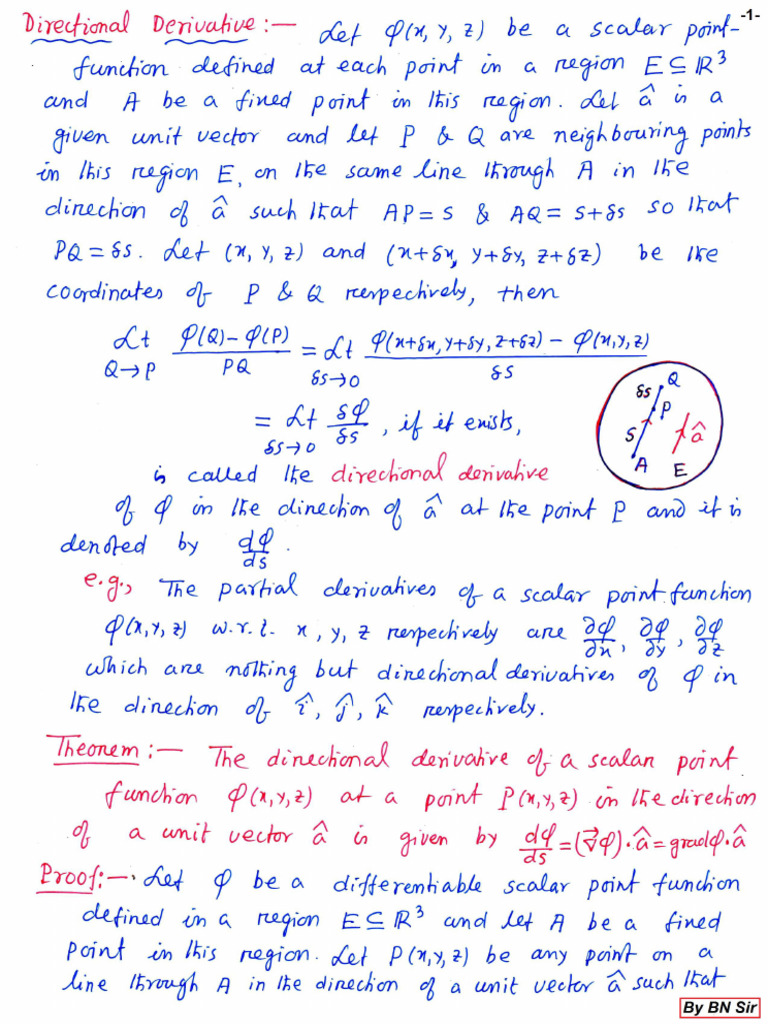 -1-
Directional Derivative :— Let φ(x, y, z) be a scalar point-
function defined at each point in a region E ⊆ ℝ³
and A be a fixed point in this region. Let â is a
given unit vector and let P & Q are neighbouring points
in this region E, on the same line through A in the
direction of â such that AP = s & AQ = s+δs so that
PQ = δs. Let (x, y, z) and (x+δx, y+δy, z+δz) be the
coordinates of P & Q respectively, then
Lt_{Q→P} (φ(Q) − φ(P))/PQ = Lt_{δs→0} (φ(x+δx, y+δy, z+δz) − φ(x, y, z))/δs
= Lt_{δs→0} δφ/δs , if it exists,
Q
δs
P
s
â
A
E
is called the directional derivative
of φ in the direction of â at the point P and it is
denoted by dφ/ds .
e.g., The partial derivatives of a scalar point function
φ(x, y, z) w.r.t. x, y, z respectively are ∂φ/∂x, ∂φ/∂y, ∂φ/∂z
which are nothing but directional derivatives of φ in
the direction of î, ĵ, k̂ respectively.
Theorem :— The directional derivative of a scalar point
function φ(x, y, z) at a point P(x, y, z) in the direction
of a unit vector â is given by dφ/ds = (∇⃗φ)·â = gradφ·â
Proof :— Let φ be a differentiable scalar point function
defined in a region E ⊆ ℝ³ and let A be a fixed
point in this region. Let P(x, y, z) be any point on a
line through A in the direction of a unit vector â such that
By BN Sir